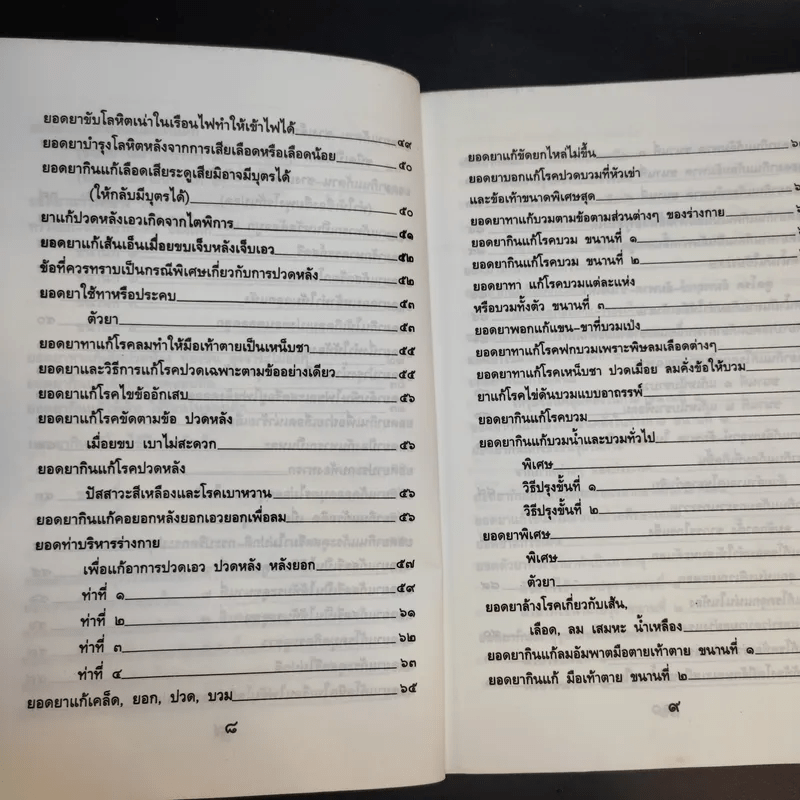 ยอดยาขับโลหิตเน่าในเรือนไฟทำให้เข้าไฟได้ ๔๙
ยอดยาบำรุงโลหิตหลังจากการเสียเลือดหรือเลือดน้อย ๕๐
ยอดยากินแก้เลือดเสียระดูเสียมิอาจมีบุตรได้
(ให้กลับมีบุตรได้) ๕๐
ยาแก้ปวดหลังเอวเกิดจากไตพิการ ๕๑
ยอดยาแก้เส้นเอ็นเมื่อยขบเจ็บหลังเจ็บเอว ๕๒
ข้อที่ควรทราบเป็นกรณีพิเศษเกี่ยวกับการปวดหลัง ๕๒
ยอดยาใช้ทาหรือประคบ ๕๓
ตัวยา ๕๓
ยอดยาทาแก้โรคลมทำให้มือเท้าตายเป็นเหน็บชา ๕๕
ยอดยาและวิธีการแก้โรคปวดเฉพาะตามข้ออย่างเดียว ๕๕
ยอดยาแก้โรคไขข้ออักเสบ ๕๖
ยอดยาแก้โรคขัดตามข้อ ปวดหลัง
เมื่อยขบ เบาไม่สะดวก ๕๖
ยอดยากินแก้โรคปวดหลัง
ปัสสาวะสีเหลืองและโรคเบาหวาน ๕๖
ยอดยากินแก้คอยอกหลังยอกเอวยอกเพื่อลม ๕๖
ยอดท่าบริหารร่างกาย
เพื่อแก้อาการปวดเอว ปวดหลัง หลังยอก ๕๗
ท่าที่ ๑ ๕๙
ท่าที่ ๒ ๖๑
ท่าที่ ๓ ๖๒
ท่าที่ ๔ ๖๓
ยอดยาแก้เคล็ด, ยอก, ปวด, บวม ๖๕
๘
ยอดยาแก้ขัดยกไหล่ไม่ขึ้น
ยอดยาบอกแก้โรคปวดบวมที่หัวเข่า
และข้อเท้าขนาดพิเศษสุด
ยอดยาทาแก้บวมตามข้อตามส่วนต่างๆ ของร่างกาย
ยอดยากินแก้โรคบวม ขนานที่ ๑
ยอดยากินแก้โรคบวม ขนานที่ ๒
ยอดยาทา แก้โรคบวมแต่ละแห่ง
หรือบวมทั้งตัว ขนานที่ ๓
ยอดยาพอกแก้แขน-ขาที่บวมเป่ง
ยอดยาทาแก้โรคฟกบวมเพราะพิษลมเลือดต่างๆ
ยอดยาทาแก้โรคเหน็บชา ปวดเมื่อย ลมคั่งข้อให้บวม
ยาแก้โรคไข่ดันบวมแบบอาถรรพ์
ยอดยากินแก้โรคบวม
ยอดยากินแก้บวมน้ำและบวมทั่วไป
พิเศษ
วิธีปรุงขั้นที่ ๑
วิธีปรุงขั้นที่ ๒
ยอดยาพิเศษ
พิเศษ
ตัวยา
ยอดยาล้างโรคเกี่ยวกับเส้น,
เลือด, ลม เสมหะ น้ำเหลือง
ยอดยากินแก้ลมอัมพาตมือตายเท้าตาย ขนานที่ ๑
ยอดยากินแก้ มือเท้าตาย ขนานที่ ๒
๙